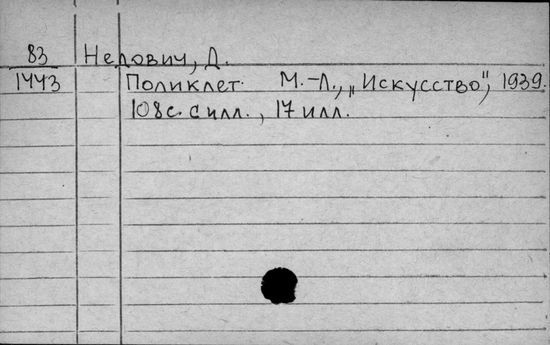 83 Недович, Д.
1443 Поликлет. М.-Л., „Искусство", 1939.
108с. с илл., 17 илл.